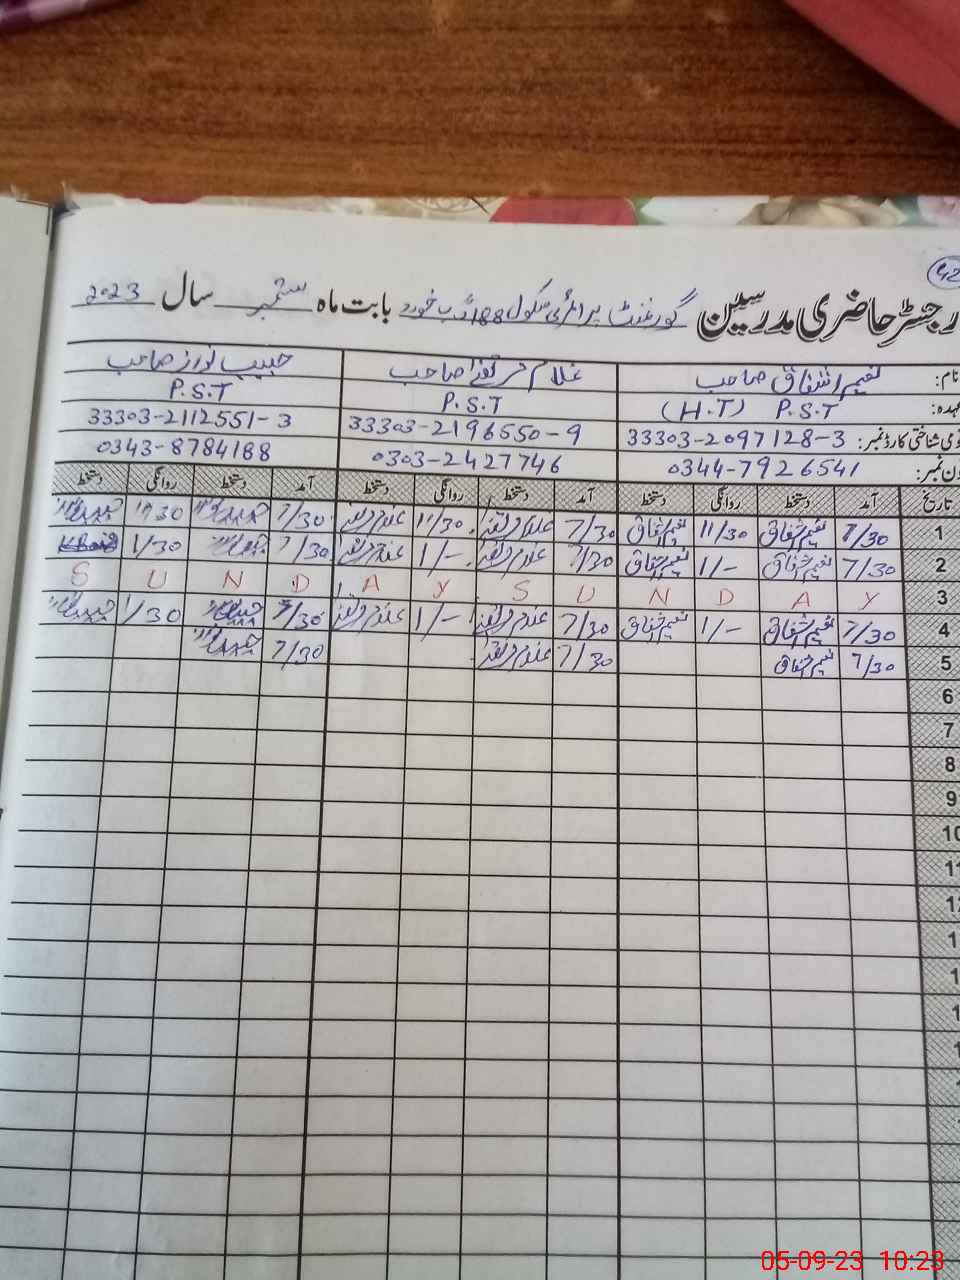 42
رجسٹر حاضری مدرسین گورنمنٹ پرائمری سکول 188 گ ب خورد بابت ماہ ستمبر سال 2023
نام: نعیم اشفاق صاحب غلام مرتضیٰ صاحب حبیب نواز صاحب
عہدہ: P.S.T (H.T) P.S.T P.S.T
قومی شناختی کارڈ نمبر: 33303-2097128-3 33303-2196550-9 33303-2112551-3
فون نمبر: 0344-7926541 0303-2427746 0343-8784188
تاریخ آمد دستخط روانگی دستخط آمد دستخط روانگی دستخط آمد دستخط روانگی دستخط
1 7/30 نعیم اشفاق 11/30 نعیم اشفاق 7/30 غلام مرتضیٰ 11/30 غلام مرتضیٰ 7/30 11/30
2 7/30 نعیم اشفاق 1/- نعیم اشفاق 7/30 غلام مرتضیٰ 1/- غلام مرتضیٰ 7/30 1/30
3 S U N D A Y S U N D A Y
4 7/30 نعیم اشفاق 1/- نعیم اشفاق 7/30 غلام مرتضیٰ 1/- غلام مرتضیٰ 7/30 1/30
5 7/30 نعیم اشفاق 7/30 غلام مرتضیٰ 7/30
6
7
8
9
10
11
12
05-09-23 10:23